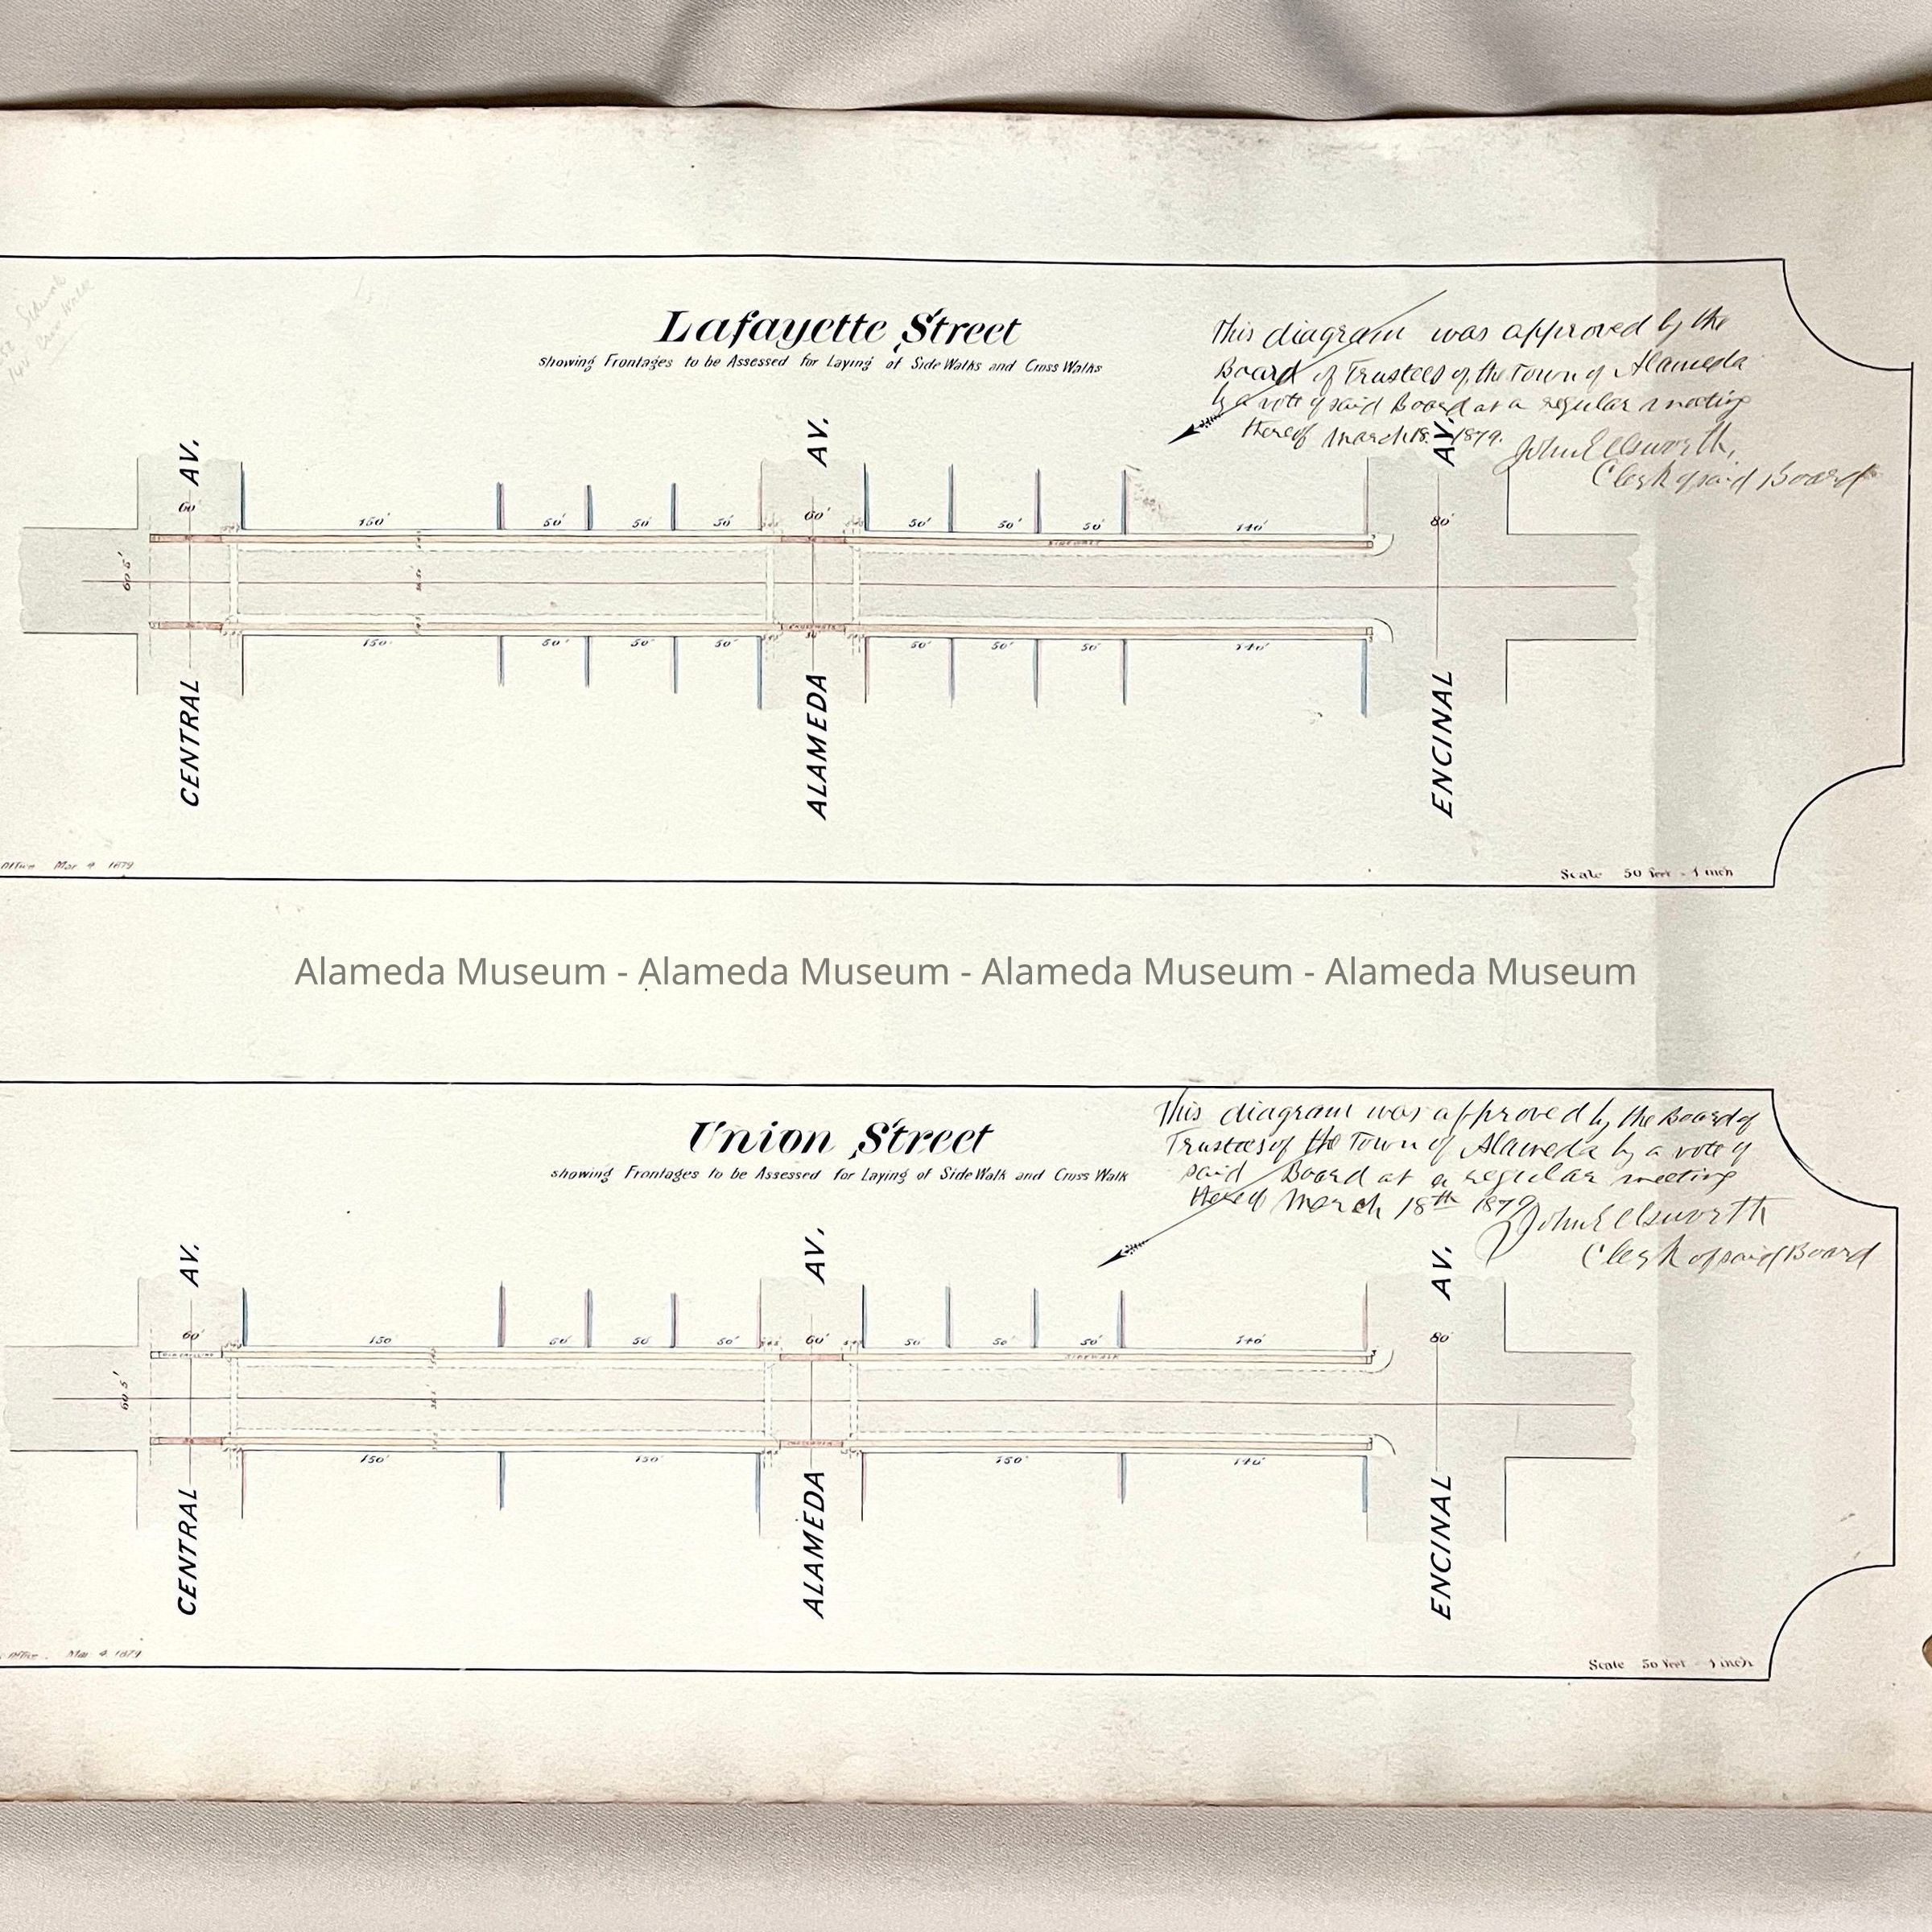 Lafayette Street
showing Frontages to be Assessed for Laying of Side Walks and Cross Walks
This diagram was approved by the
Board of Trustees of the Town of Alameda
by a vote of said Board at a regular meeting
thereof March 18. 1879.
John Ellsworth,
Clerk of said Board
AV. AV. AV.
60' 150' 50' 50' 50' 60' 50' 50' 50' 140' 80'
SIDEWALK
60.5'
CROSSWALK
150' 50' 50' 50' 50' 50' 50' 140'
CENTRAL ALAMEDA ENCINAL
Office Mar 4 1879
Scale 50 feet = 1 inch
Alameda Museum - Alameda Museum - Alameda Museum - Alameda Museum
Union Street
showing Frontages to be Assessed for Laying of Side Walk and Cross Walk
This diagram was approved by the Board of
Trustees of the Town of Alameda by a vote of
said Board at a regular meeting
thereof March 18th 1879
John Ellsworth
Clerk of said Board
AV. AV. AV.
60' 150 50' 50' 50' 60' 50 50' 50' 140' 80'
SIDEWALK
60.5'
150' 150' 150' 140'
CENTRAL ALAMEDA ENCINAL
Office. Mar 4 1879
Scale 50 feet = 1 inch